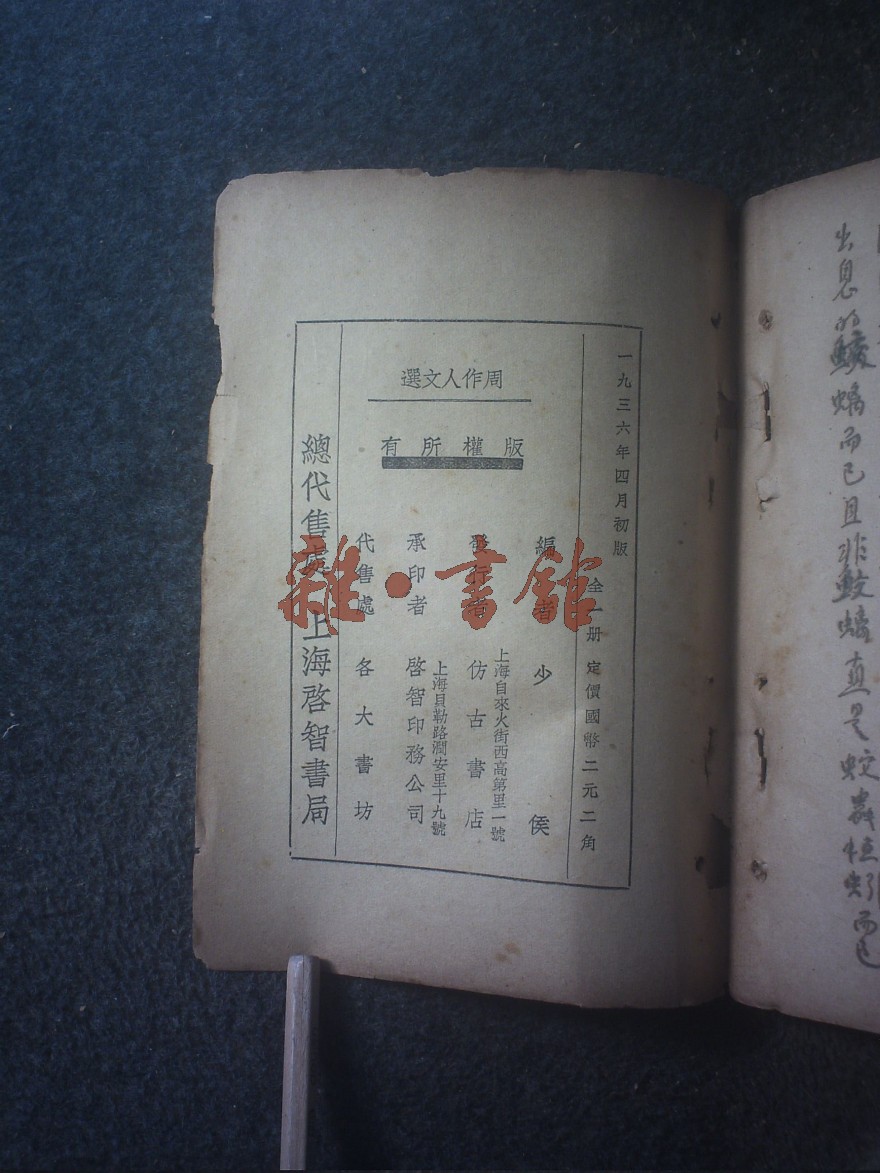 出息的鮫蟎而已且非鮫蟎直是蛟蟲牲蚓而已
一九三六年四月初版
全一册 定價國幣二元二角
周作人文選
版權所有
編者 少侯
發行者 仿古書店
上海自來火街西高第里一號
承印者 啓智印務公司
上海貝勒路潤安里十九號
代售處 各大書坊
總代售處 上海啓智書局
雜·書館